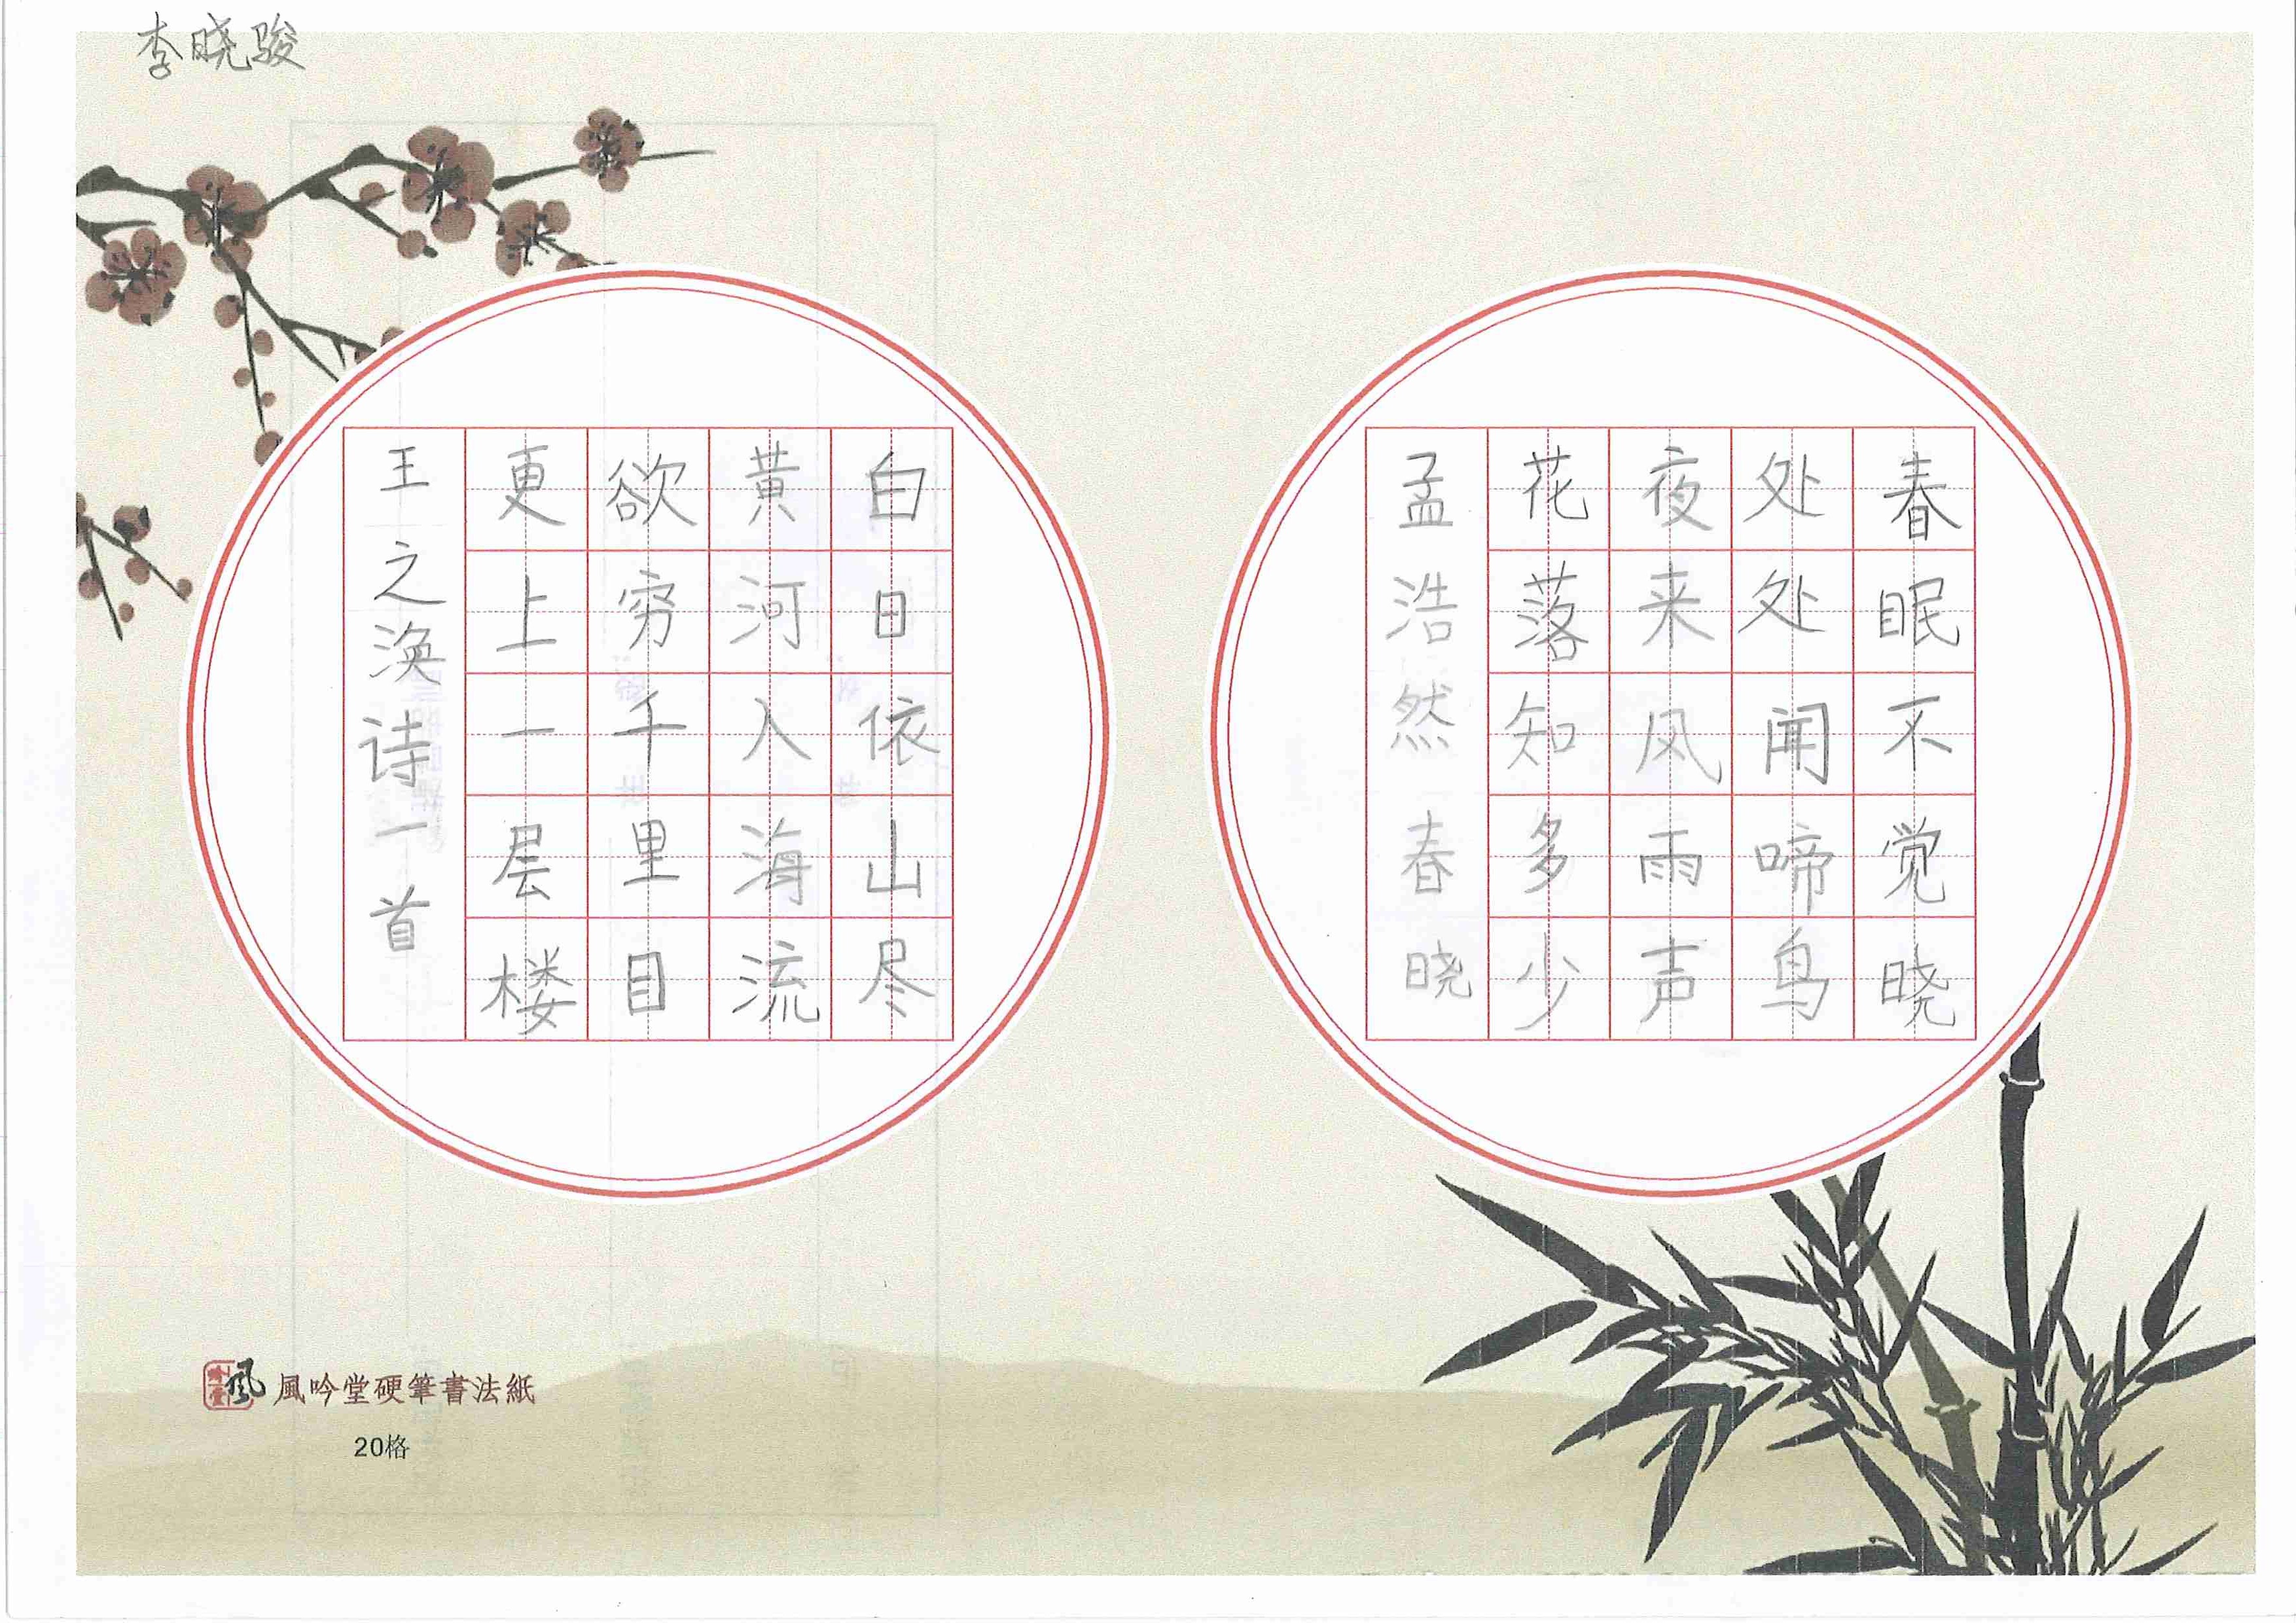 李晓骏
春眠不觉晓
处处闻啼鸟
夜来风雨声
花落知多少
孟浩然 春晓
白日依山尽
黄河入海流
欲穷千里目
更上一层楼
王之涣诗一首
風吟堂硬筆書法紙
20格